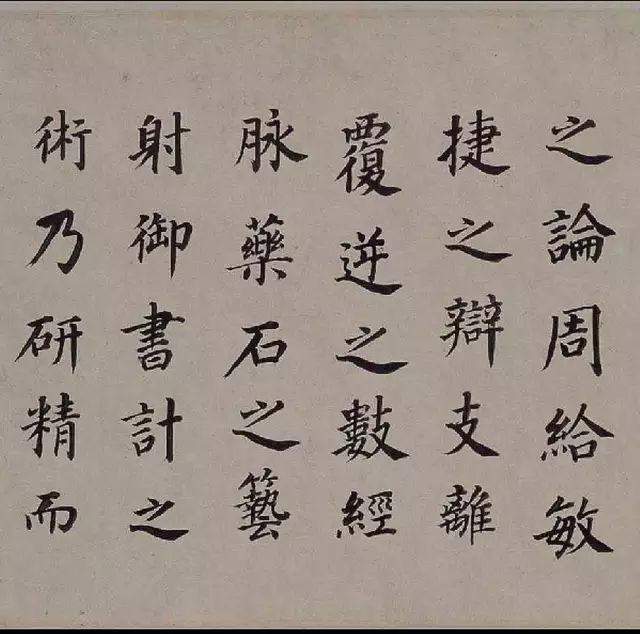 之論周給敏
捷之辯支離
覆逆之數經
脉藥石之藝
射御書計之
術乃研精而